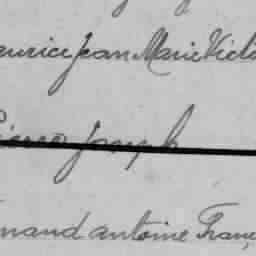 aurice Jean Marie Victo
Pierre Joseph
nand antoine Franç